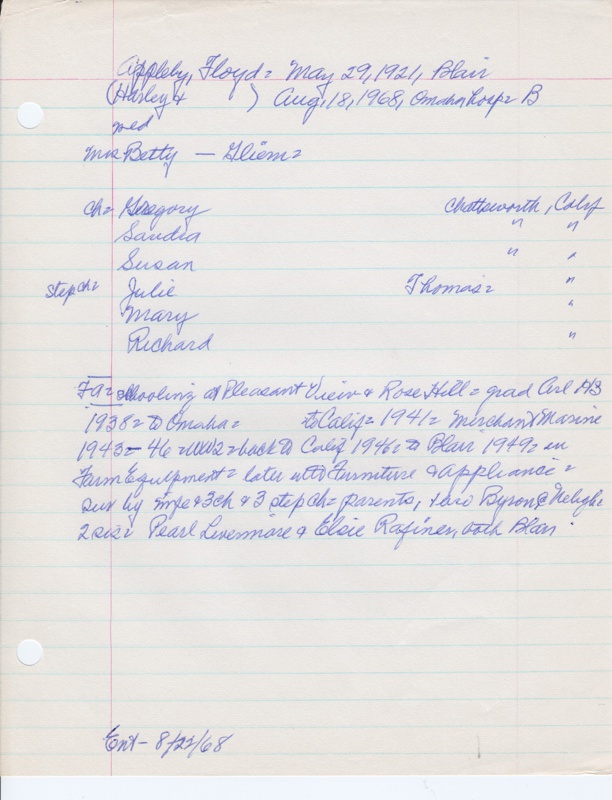 Appleby, Floyd = May 29, 1921, Blair
(Harley & ) Aug. 18, 1968, Omaha hosp = B
med
Mrs Betty — Gliem =
ch = Gregory Chattsworth, Calif
Sandra " "
Susan " "
step ch = Julie Thomas = "
Mary "
Richard "
Fa = schooling at Pleasant View & Rose Hill = grad Arl HS
1938 = to Omaha = to Calif = 1941 = Merchant Marine
1943 - 46 = WW2 = back to Calif 1946 = to Blair 1949 = in
Farm Equipment = later into Furniture & appliance =
sur by wife & 3 ch & 3 step ch = parents, & bro Byron @ Neligh =
2 sis = Pearl Livermore & Elsie Rafiner, both Blair.
Ent - 8/22/68